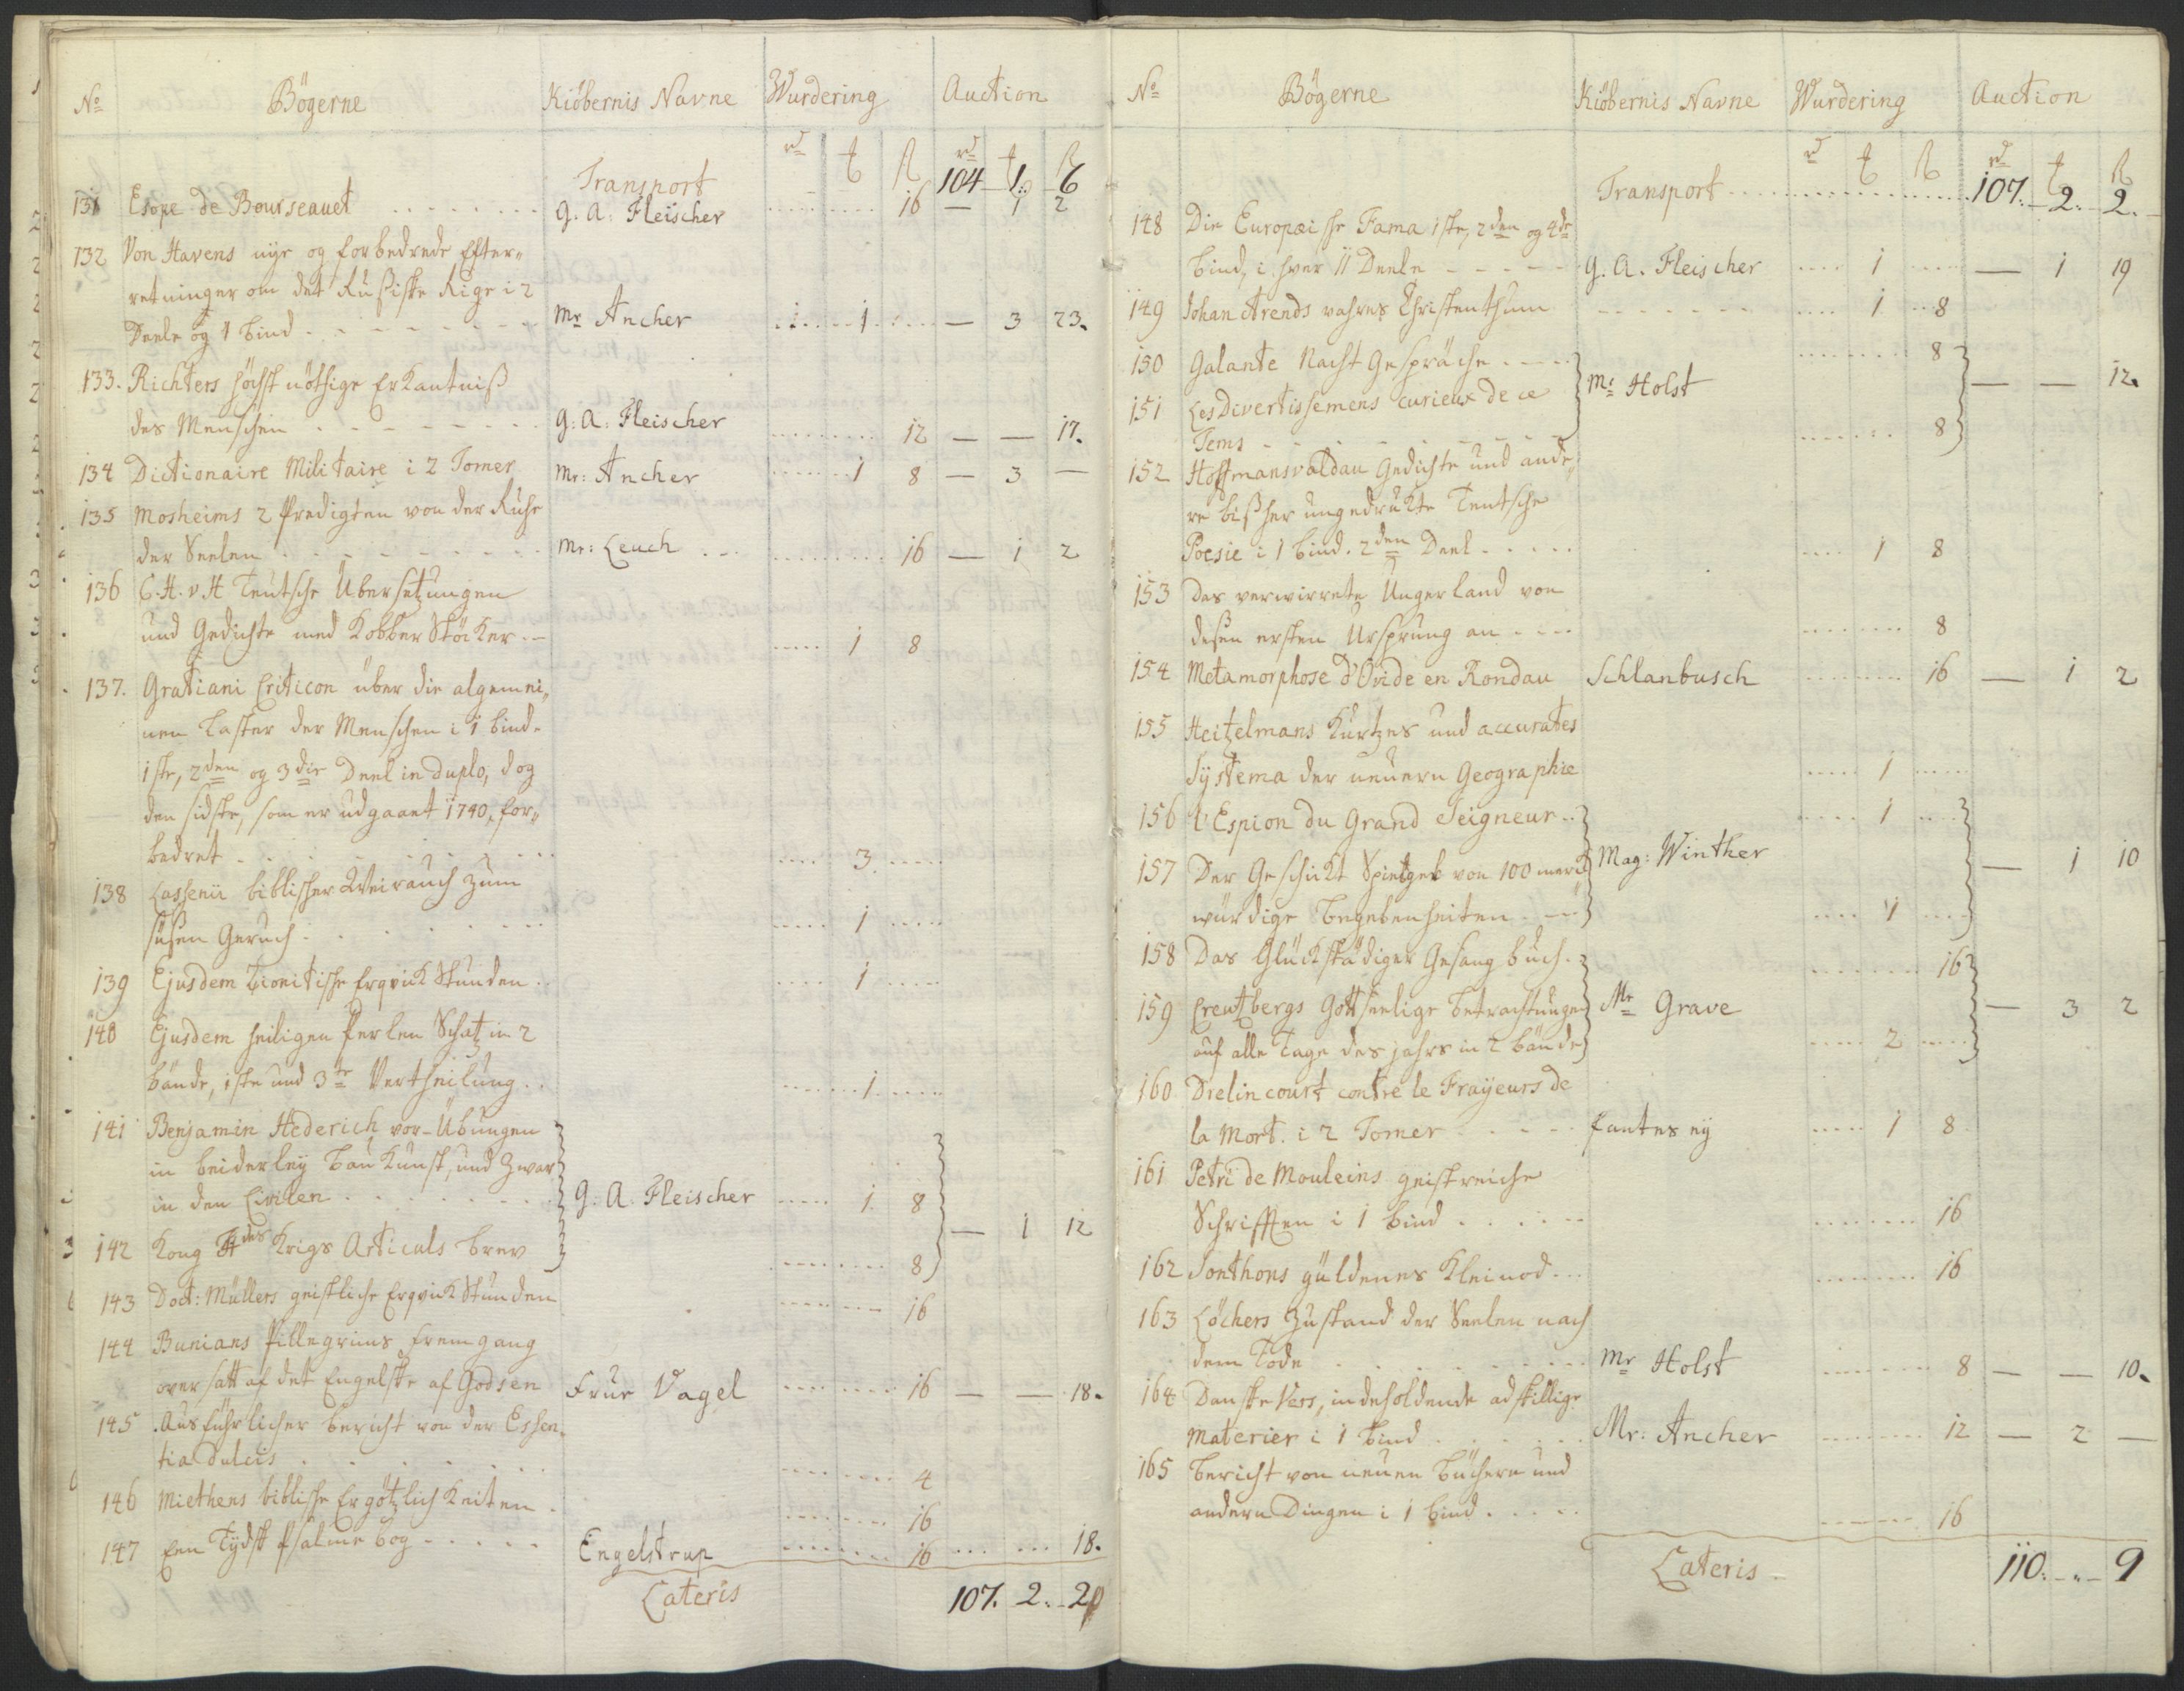 No Bögerne Kiöbernis Navne Wurdering Auction
rd ₰ ß rd ₰ ß
Transport 104 1 6
131 Esope de Bourseauet G. A: Fleischer 16 — 1 2
132 Von Havens nye og forbedrede Efter-
retninger om det Rußiske Rige i 2
Deele og 1 bind Mr Ancher 1 — 3 23.
133. Richters höchst nöthige Erkantniß
des Menschen G: A: Fleischer 12 — — 17.
134 Dictionaire Militaire i 2 Tomer Mr: Ancher 1 8 — 3 —
135 Mosheims 2 Predigten von der Ruhe
der Seelen Mr: Leuch 16 — 1 2
136 C. H. v. H Teutsche Übersetzungen
und Gedichte med Kobber Stöcker 1 8
137. Gratiani Criticon über die algemei-
nen Laster der Menschen i 1 bind.
1ste, 2den og 3die Deel in duplo, dog
den sidste, som er udgaaet 1740, for-
bedret 3
138 Lassenii biblischer Weirauch zum
süßen Geruch 1
139 Ejusdem Zionitische Erqvick Stunden 1
140 Ejusdem heiligen Perlen Schatz in 2
bände, 1ste und 3te Vertheilung 1
141 Benjamin Hederich vor-Übungen
in beiderley Bau Kunst, und Zwar
in den Civilen G: A. Fleischer 1 8
— 1 12
142 Kong des Krigs Articuls brev 8
143 Doct: Müllers geistliche Erqvick Stunden 16
144 Bunians Pillegrims fremgang
over satt af det Engelske af Godsen Frue Vagel 16 — — 18.
145 Ausführlicher bericht von der Essen-
tia Dulcis 4
146 Miethens biblische Ergötzlich Keiten 16
147 Een Tydsk Psalme bog Engelstrup 16 18.
Lateris 107. 2. 2
No Bögerne Kiöbernis Navne Wurdering Auction
rd ₰ ß rd ₰ ß
Transport 107. 2. 2.
148 Die Europæische Fama 1ste, 2den og 4de
bind, i hver 11 Deele G. A. Fleischer 1 — 1 19
149 Johan Arends wahres Christenthum 1 8
150 Galante Nacht Gespräche 8
Mr Holst — — 12.
151 Les Divertissemens curieux de ce
Tems 8
152 Hoffmansvaldau Gedichte und ande-
re bißher ungedrukte Teutsche
Poesie i 1 bind. 2den Deel 1 8
153 Das verwirrete Ungerland von
deßen ersten Ursprung an 8
154 Metamorphose d'Ovide en Rondau Schlanbusch 16 — 1 2
155 Heitzelmans Kürtzes und accurates
Systema der neuern Geographie 1
156 l'Espion du Grand Seigneur 1
Mag: Winther — 1 10
157 Der Geschickt Spiegel von 100 merck
würdige Begebenheiten 1
158 Das Glückstädiger Gesang buch. 16
159 Creutzbergs Gottseelige betrachtungen Mr Grave — 3 2
auf alle Tage des jahrs in 2 bände 2
160 Drelincourt contre le Frayeurs de
la Mort. i 2 Tomer fantes ey 1 8
161 Petri de Mouleins geistreiche
Schrifften i 1 bind 16
162 Sonthons güldenes Kleinod 16
163 Löchers Zustand der Seelen nach
dem Tode Mr Holst 8 — — 10.
164 Danske Vers, indeholdende adskillige
Materier i 1 bind Mr: Ancher 12 — 2 —
165 bericht von neuen büchern und
andern Dingen i 1 bind 16
Lateris 110. - 9